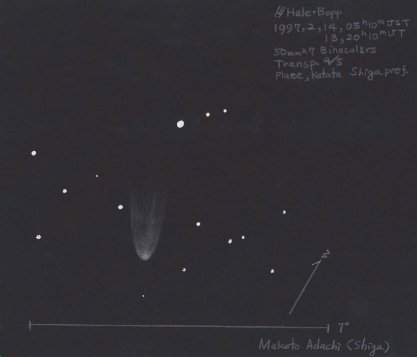 Hale-Bopp
1997, 2, 14, 05ʰ10ᵐ JST
13, 20ʰ10ᵐ UT
50mm×7 Binoculars
Transp. 4/5
Place, Katata Shiga pref.
N
7°
Makoto Adachi (Shiga)